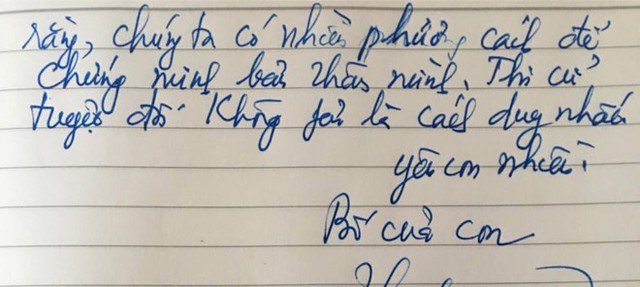 rằng, chúng ta có nhiều phương cách để
chứng minh bản thân mình. Thi cử
tuyệt đối không phải là cách duy nhất
yêu con nhiều!
Bố của con